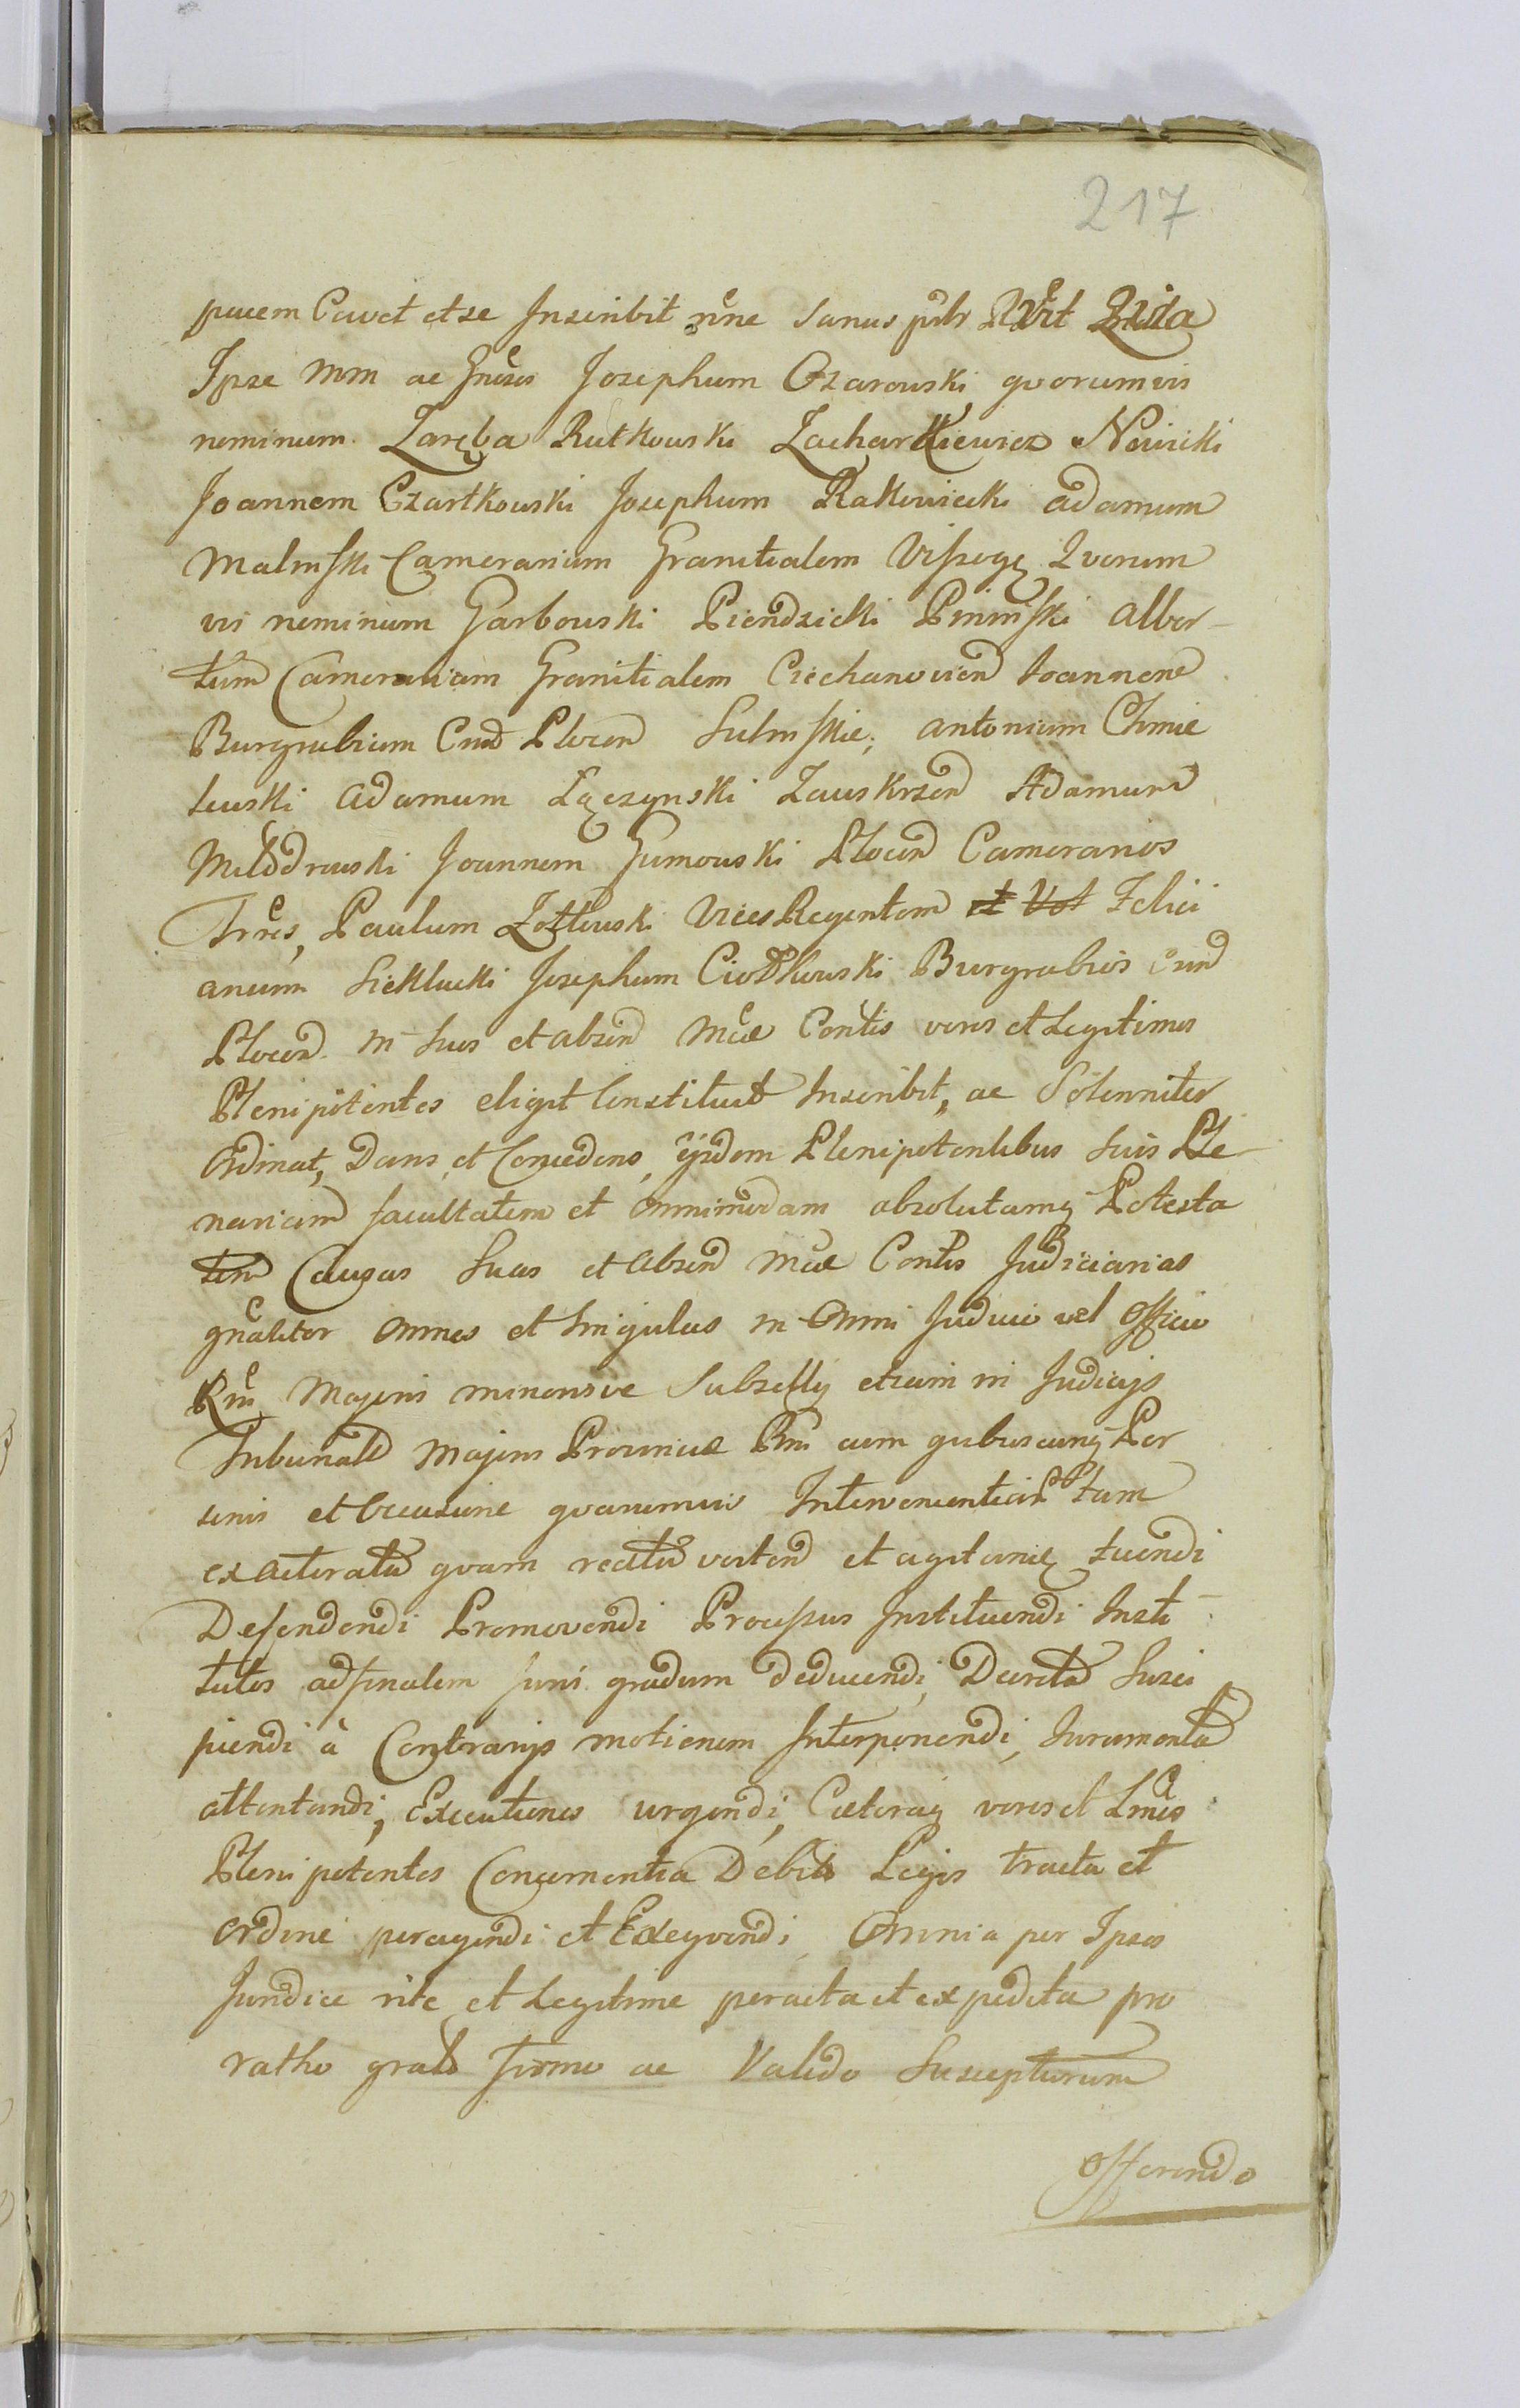 217
pacem Cavet et se Inscribit nne Sanus pub
Ipse Mm ac Gnosos Josephum Ozarowski qvorumvis
nominum Zaręba Rutkowski Zacharkiewicz Nowicki
Joannem Czartkowski Josephum Rakowiecki Adamum
Malinski Camerarium Granitialem Vissogr Qvorum
vis nominum Garbowski Piendzicki Pniniski Alber-
tum Camerariam Granitialem Ciechanovien Joannem
Burgrabium Cnd Plocen Sulinskie, Antonium Chmie
lewski Adamum Łączynski Zauskrzen Adamum
Młodrowski Joannem Gumowski Plocen Camerarios
Trres, Paulum Żołtowski ViceRegentem et Vot Felici
anum Siekłucki Josephum Ciołkowski Burgrabios Cnd
Plocen in Suos et absen Mcae Contis veros et Legitimos
Plenipotentes eligit Constituit Inscribit, ac Solenniter
Ordinat, Dans et Concedens, ijsdem Plenipotentibus Suis Ple-
nariam facultatem et Omnimodam absolutamq Potesta
tem Causas Suas et absen Mcae Contis Judiciarias
gnaliter Omnes et Singulas in Omni Judicio vel Officio
Rni Majoris minorisve Subsellij etiam in Judicijs
Tribunal Majoris Provinciae Rni cum qvibuscunq Per
sonis et Occasione qvarumvis Intervenientiar tam
ex Actoratu qvam reatu verten et agitaniq tuendi
Defendendi Promovendi Processus Instituendi Insti-
tutos ad finalem Juris gradum deducendi, Decreta Susci
piendi à Contrarijs motionem Interponendi, Juramenta
attentandi, Executiones urgendi, Caeteraq veros et Lmos
Plenipotentes Concernentia Debito Legis tractu et
Ordine peragendi et Exeqvendi, Omnia per Ipsos
Juridice rite et Legitime peracta et expedita pro
ratho grato firmo ac Valido Suscepturum
Offerendo